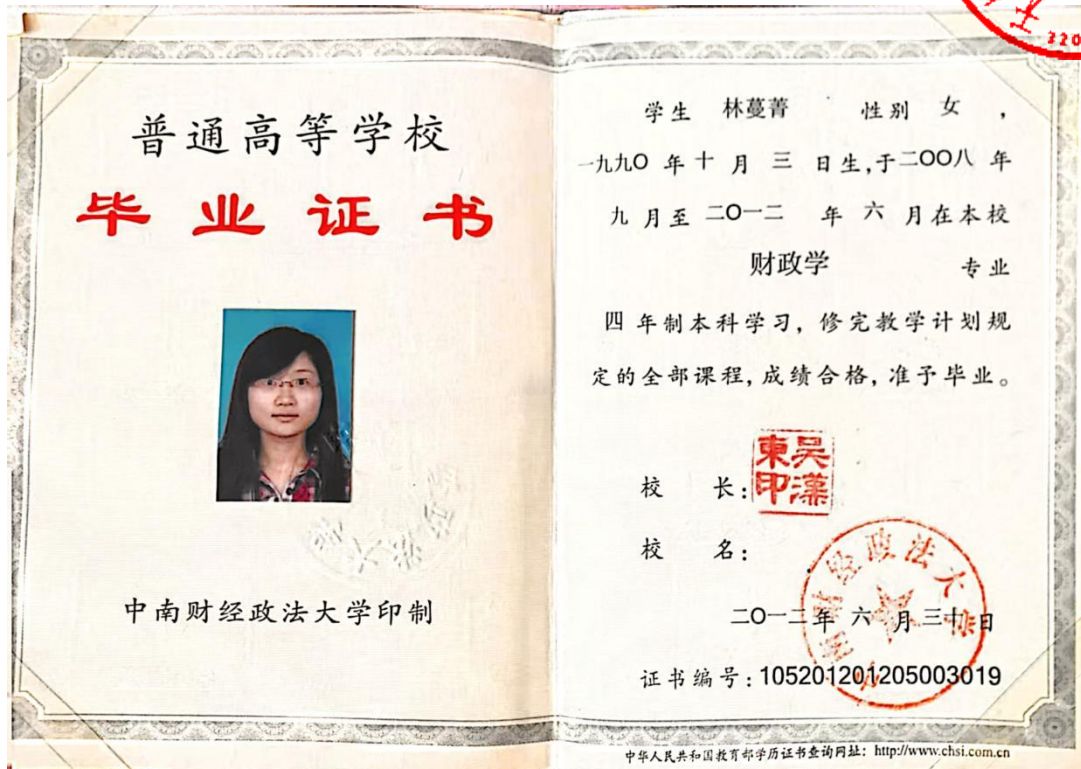 普通高等学校
毕业证书
中南财经政法大学印制
学生 林蔓菁 性别 女，
一九九〇年十月三日生,于二〇〇八年
九月至二〇一二年六月在本校
财政学 专业
四年制本科学习，修完教学计划规
定的全部课程,成绩合格,准予毕业。
校长：
吴汉東印
校名：
中南财经政法大学
二〇一二年六月三十日
证书编号：105201201205003019
中华人民共和国教育部学历证书查询网址：http://www.chsi.com.cn
320